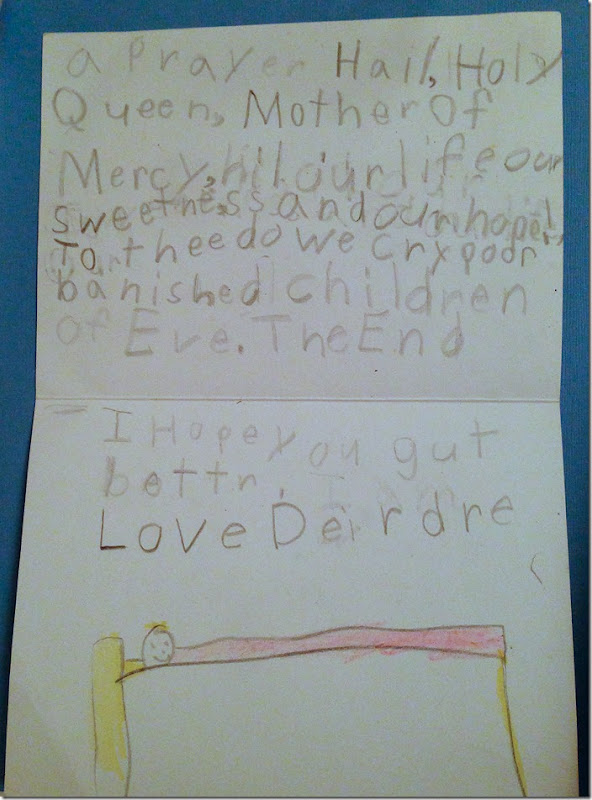 a Prayer Hail, Holy
Queen, Mother Of
Mercy, hil our life our
sweetness and our hope!
To thee do we cry poor
banished children
of Eve. The End
I Hope you gut
bettr.
Love Deirdre